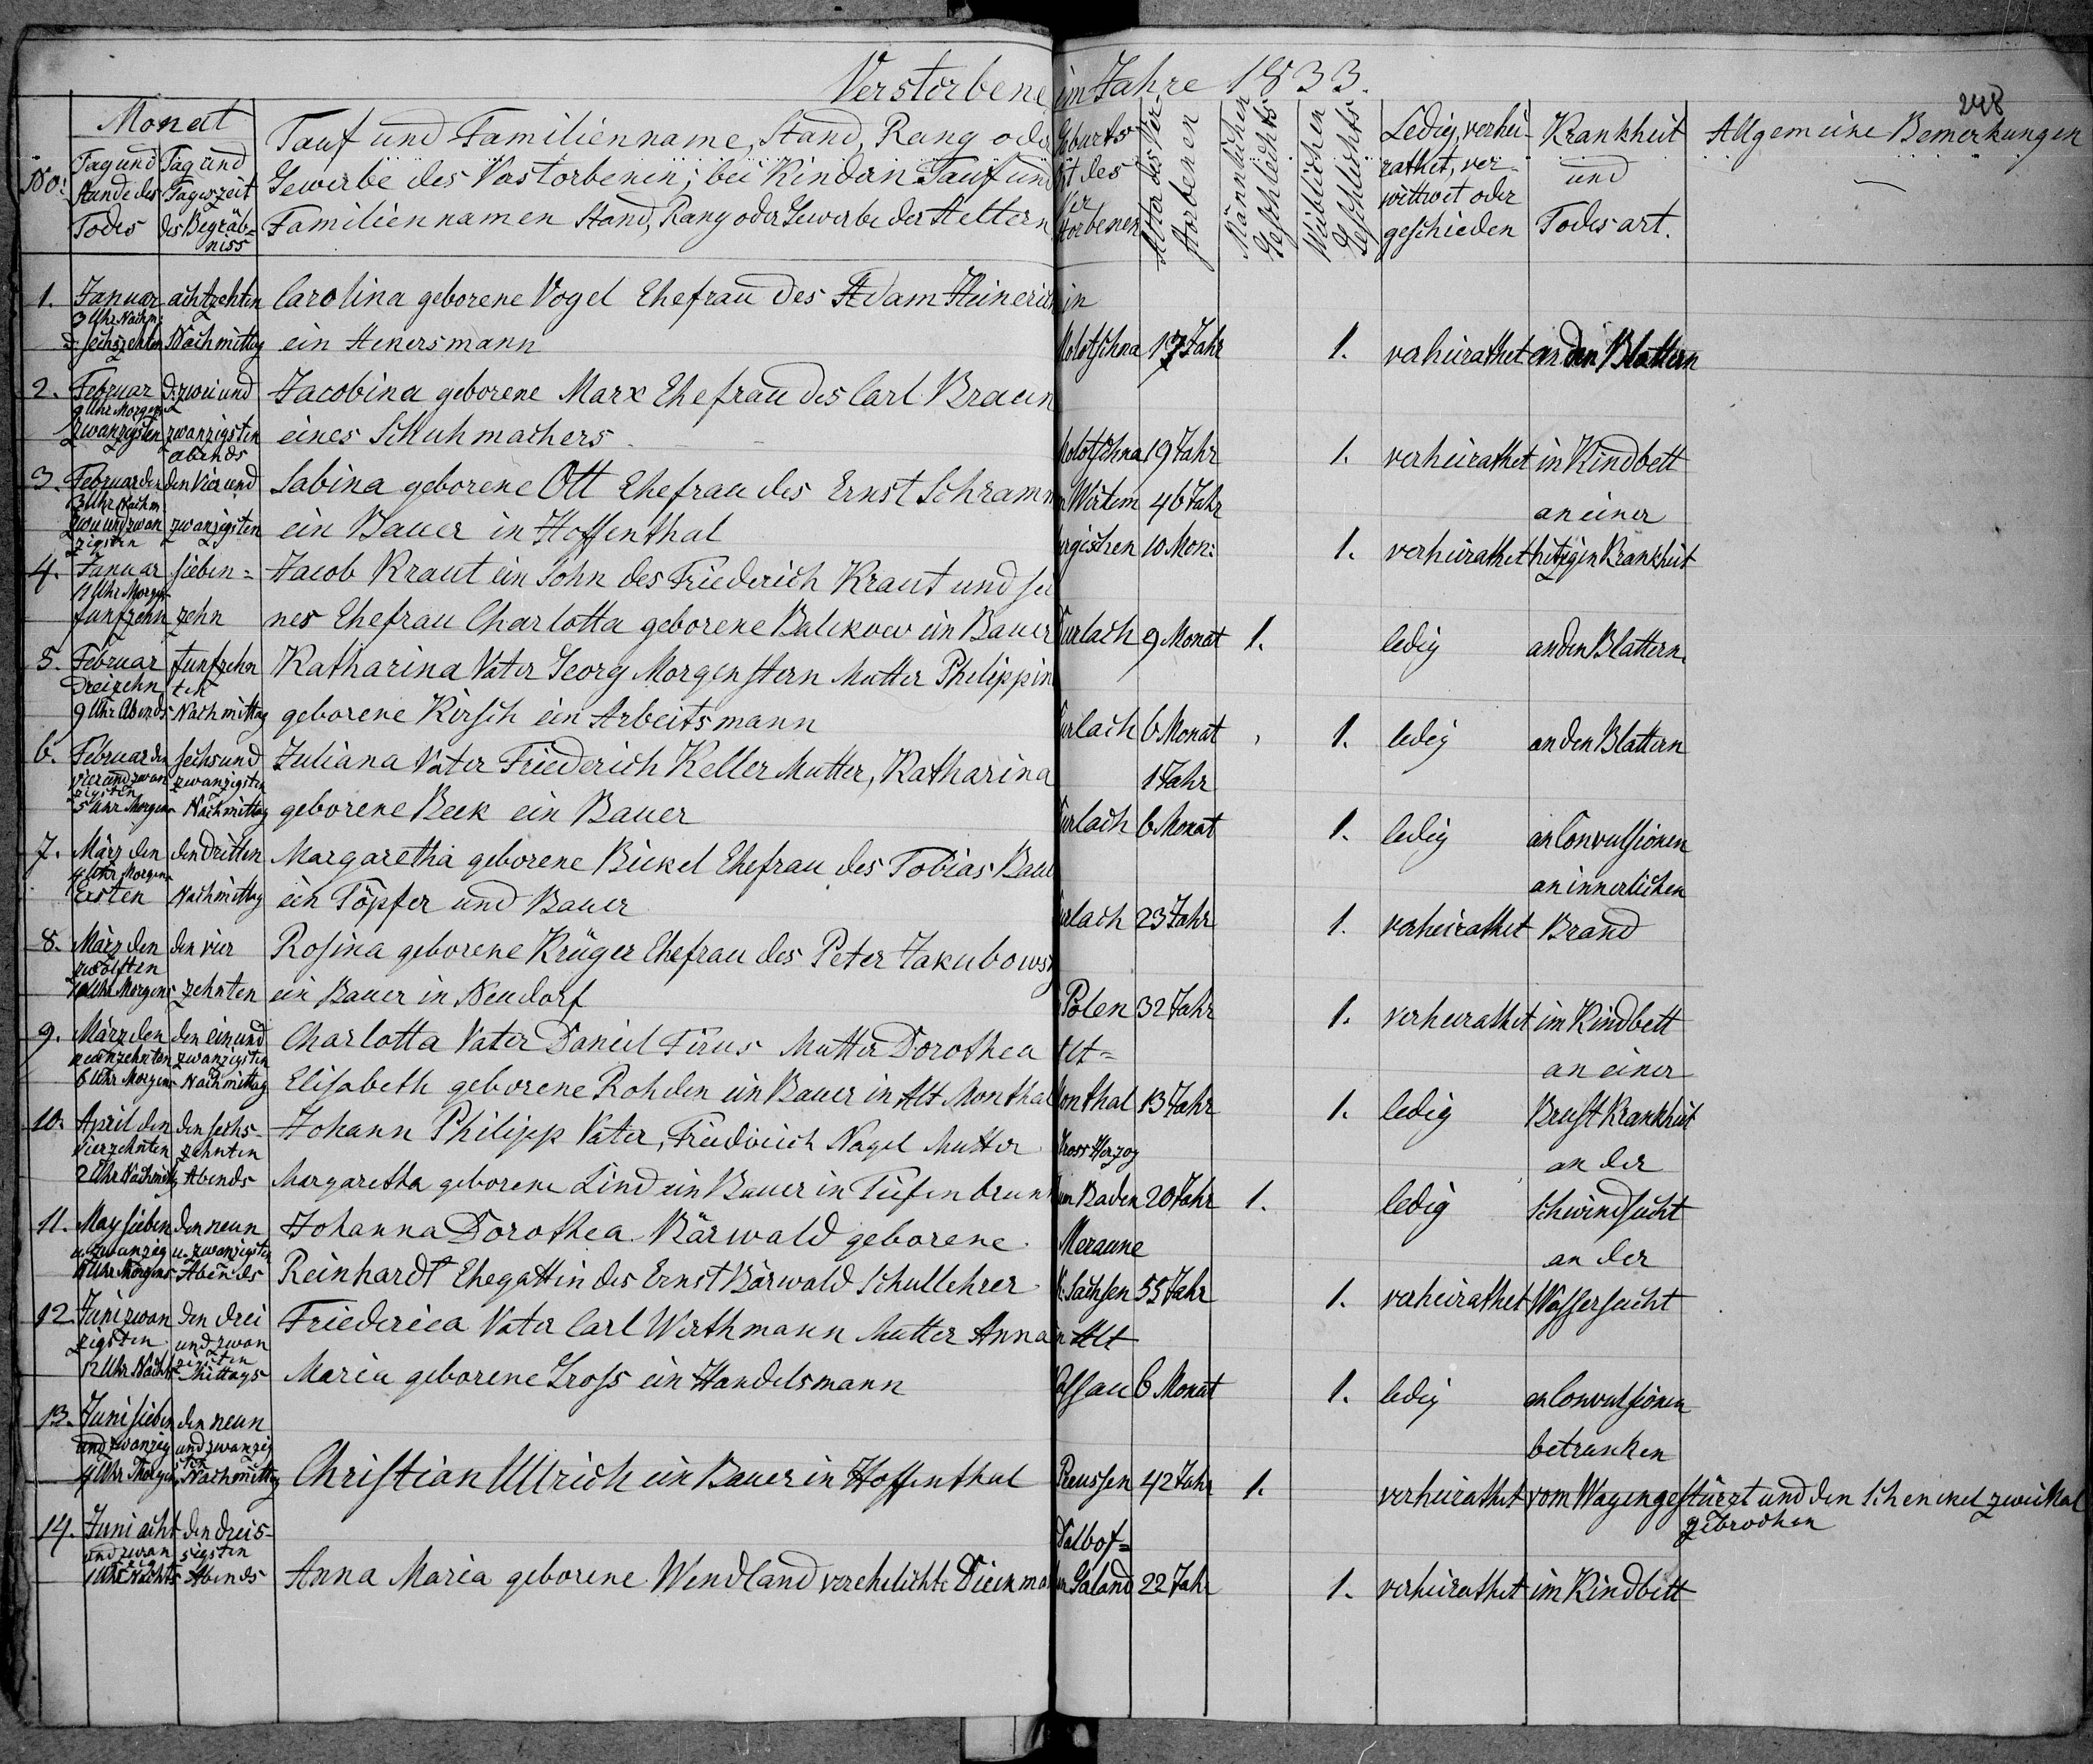 Verstorbene im Jahre 1833.
248
No:
Monat
Tag und Stunde des Todes
Tag und Tageszeit des Begräbniss
Tauf und Familienname, Stand, Rang oder
Gewerbe des Verstorbenen; bei Kindern Tauf und
Familiennamen Stand, Rang oder Gewerbe der Aeltern
Geburts
Ort des
Ver
storbenen
Alter des Verstorbenen
Männlichen Geschlechts
Weiblichen Geschlechts
Ledig, verhei-
rathet, ver-
wittwet oder
geschieden
Krankheit
und
Todesart.
Allgemeine Bemerkungen
1. Januar achtzehten Carolina geborene Vogel Ehefrau des Adam Heinerich in
3 Uhr Nachm:
d. sechszehten Nachmittag ein Molotschna 17 Jahr 1. verheirathet an den Blattern
2. Februar d. zwei und Jacobina geborene Marx Ehefrau des Carl Braun
9 Uhr Morgens
zwanzigsten zwanzigsten eines Schuhmachers Molotschna 19 Jahr 1. verheirathet in Kindbett
abends
3. Februar den den vier und Sabina geborene Ott Ehefrau des Ernst Schramm Wirtem 46 Jahr an einer
3 Uhr Nachm:
zwei und zwan zwanzigsten ein Bauer in Hoffenthal rgischen 10 Mon: 1. verheirathet hitzigen Krankheit
zigsten
4. Januar sieben= Jacob Kraut ein Sohn des Friederich Kraut und sei
11 Uhr Morgens
funfzehn zehn nes Ehefrau Charlotta geborene Balckow ein Bauer Durlach 9 Monat 1. ledig an den Blattern.
5. Februar funfzehn Katharina Vater Georg Morgenstern Mutter Philippin
dreizehn ten
9 Uhr Abends Nachmittag geborene Kirsch ein Arbeitsmann Durlach 6 Monat 1. ledig an den Blattern
6. Februar den sechs und Juliana Vater Friederich Keller Mutter, Katharina 1 Jahr
vier und zwan zwanzigsten
zigsten
5 Uhr Morgens Nachmittag geborene Beck ein Bauer Durlach 6 Monat 1. ledig an Convulsionen
7. März den den dritten Margaretha geborene Bickel Ehefrau des Tobias Bau
4 Uhr Morgens an innerlichen
Ersten Nachmittag ein Töpfer und Bauer Durlach 23 Jahr 1. verheirathet Brand
8. März den den vier Rosina geborene Krüger Ehefrau des Peter Jakubowsk
zwölften
10 Uhr Morgens zehnten ein Bauer in Neudorf Polen 32 Jahr 1. verheirathet im Kindbett
9. März den den ein und Charlotta Vater Daniel Firus Mutter Dorothea Alt=
neunzehnten zwanzigsten an einer
6 Uhr Morgens Nachmittag Elisabeth geborene Rohden ein Bauer in Alt Monthal Monthal 13 Jahr 1. ledig Brust Krankheit
10. April den den sechs- Johann Philipp Vater, Friedrich Nagel Mutter Gross Herzog
vierzehnten zehnten an der
2 Uhr Nachmittg Abends Margaretha geborene Lind ein Bauer in Tiefenbrunn Baden 20 Jahr 1. ledig Schwindsucht
11. May sieben den neun Johanna Dorothea Bärwald geborene Meraune
u. zwanzig u. zwanzigsten an der
11 Uhr Morgens Abends Reinhardt Ehegattin des Ernst Bärwald Schullehrer K. Sachsen 55 Jahr 1. verheirathet Wassersucht
12. Juni zwan den drei Friederica Vater Carl Werthmann Mutter Anna in Alt
zigsten und zwan
zigsten
12 Uhr Nachts Mittags Maria geborene Gross ein Handelsmann Nassau 6 Monat 1. ledig an Convulsionen
13. Juni sieben den neun
und zwanzig und zwanzig betrunken
sten
4 Uhr Morgens Nachmittag Christian Ullrich ein Bauer in Hoffenthal Preussen 42 Jahr 1. verheirathet vom Wagen gestürzt und den Schenckel zwei Mal
gebrochen
14. Juni acht den dreis-
und zwan sigsten
zig
1 Uhr Nachts Abends Anna Maria geborene Wendland verehelichte 22 Jahr 1. verheirathet im Kindbett